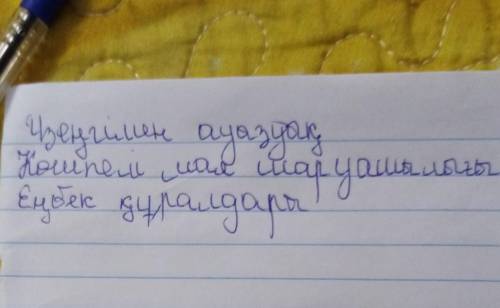 Үзеңгімен ауаздық
Көшпелі мал шаруашылығы
Еңбек құралдары